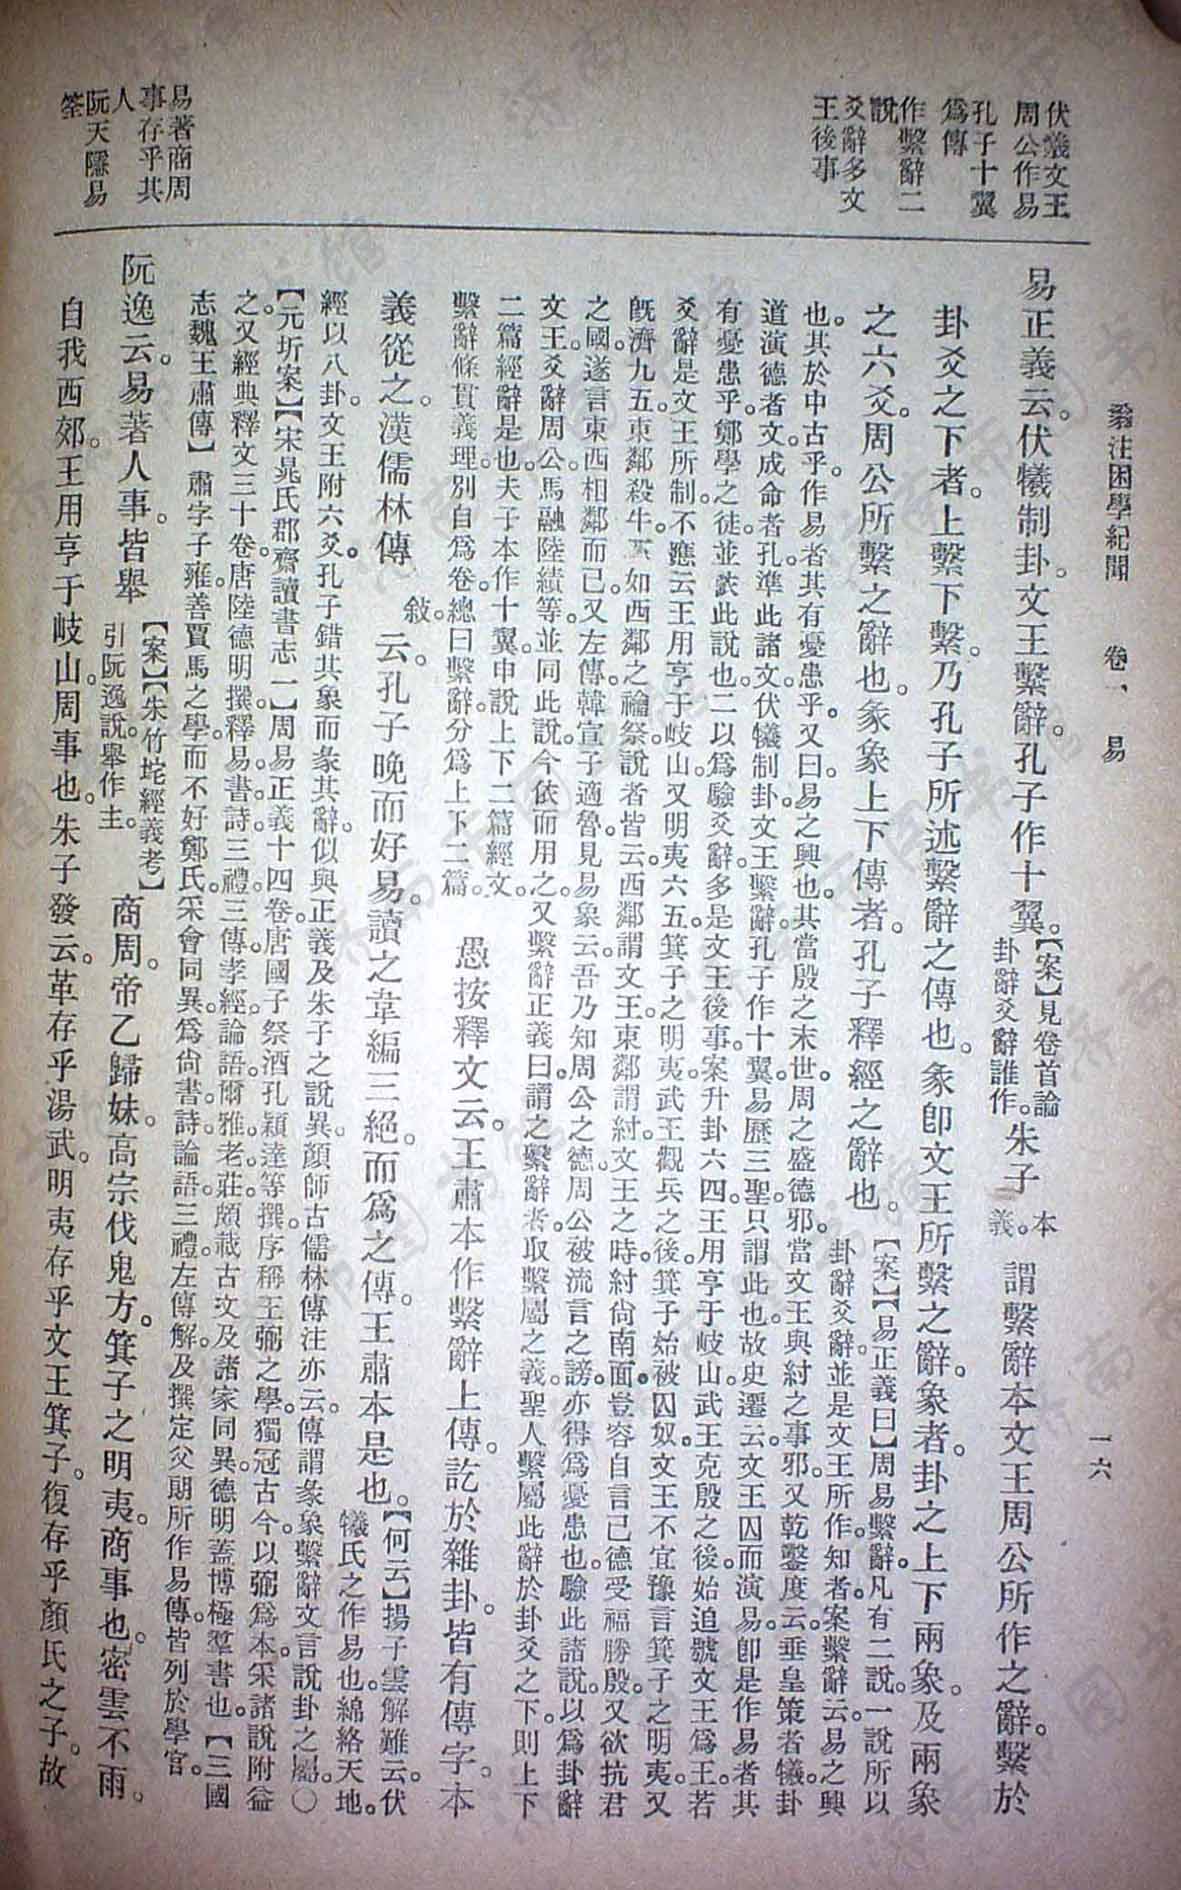 翁注困學紀聞　卷一、易　一六
伏羲文王
周公作易
孔子十翼
爲傳
作繫辭二
說
爻辭多文
王後事
易著商周
事存乎其
人
阮天隱易
筌
易正義云。伏犧制卦。文王繫辭。孔子作十翼。【案】見卷首論卦辭爻辭誰作。朱子本義。謂繫辭本文王周公所作之辭。繫於
卦爻之下者。上繫下繫。乃孔子所述繫辭之傳也。彖卽文王所繫之辭。象者。卦之上下兩象。及兩象
之六爻。周公所繫之辭也。彖象上下傳者。孔子釋經之辭也。【案】【易正義曰】周易繫辭。凡有二說。一說所以
卦辭爻辭。並是文王所作。知者。案繫辭云。易之興
也。其於中古乎。作易者其有憂患乎。又曰。易之興也。其當殷之末世。周之盛德邪。當文王與紂之事邪。又乾鑿度云。垂皇策者犧。卦
道演德者文。成命者孔。準此諸文。伏犧制卦。文王繫辭。孔子作十翼。易歷三聖。只謂此也。故史遷云。文王囚而演易。卽是作易者其
有憂患乎。鄭學之徒。並依此說也。二以爲驗爻辭。多是文王後事。案升卦六四。王用亨于岐山。武王克殷之後。始追號文王爲王。若
爻辭是文王所制。不應云王用亨于岐山。又明夷六五。箕子之明夷。武王觀兵之後。箕子始被囚奴。文王不宜豫言箕子之明夷。又
旣濟九五。東鄰殺牛。不如西鄰之禴祭。說者皆云。西鄰謂文王。東鄰謂紂。文王之時。紂尙南面。豈容自言己德受福勝殷。又欲抗君
之國。遂言東西相鄰而已。又左傳。韓宣子適魯。見易象云。吾乃知周公之德。周公被流言之謗。亦得爲憂患也。驗此諸說。以爲卦辭
文王。爻辭周公。馬融陸績等。並同此說。今依而用之。又繫辭正義曰。謂之繫辭者。取繫屬之義。聖人繫屬此辭於卦爻之下。則上下
二篇經辭是也。夫子本作十翼。申說上下二篇經文。
繫辭條貫義理。別自爲卷。總曰繫辭。分爲上下二篇。愚按釋文云。王肅本作繫辭上傳。訖於雜卦。皆有傳字。本
義從之。漢儒林傳敍。云。孔子晚而好易。讀之韋編三絕。而爲之傳。王肅本是也。【何云】揚子雲解難云。伏
犧氏之作易也。綿絡天地。
經以八卦。文王附六爻。孔子錯其象而彖其辭。似與正義及朱子之說異。顏師古儒林傳注亦云。傳謂彖象繫辭文言說卦之屬。○
【元圻案】【宋晁氏郡齋讀書志一】周易正義十四卷。唐國子祭酒孔穎達等撰。序稱王弼之學。獨冠古今。以弼爲本。采諸說附益
之。又經典釋文三十卷。唐陸德明撰。釋易。書。詩。三禮。三傳。孝經。論語。爾雅。老。莊。頗載古文及諸家同異。德明蓋博極羣書也。【三國
志魏王肅傳】肅字子雍。善賈馬之學。而不好鄭氏。采會同異。爲尙書。詩。論語。三禮。左傳解。及撰定父期所作易傳。皆列於學官。
阮逸云。易著人事。皆舉【案】【朱竹垞經義考】引阮逸說。舉作主。商周。帝乙歸妹。高宗伐鬼方。箕子之明夷。商事也。密雲不雨。
自我西郊。王用亨于岐山。周事也。朱子發云。革存乎湯武。明夷存乎文王箕子。復存乎顏氏之子。故